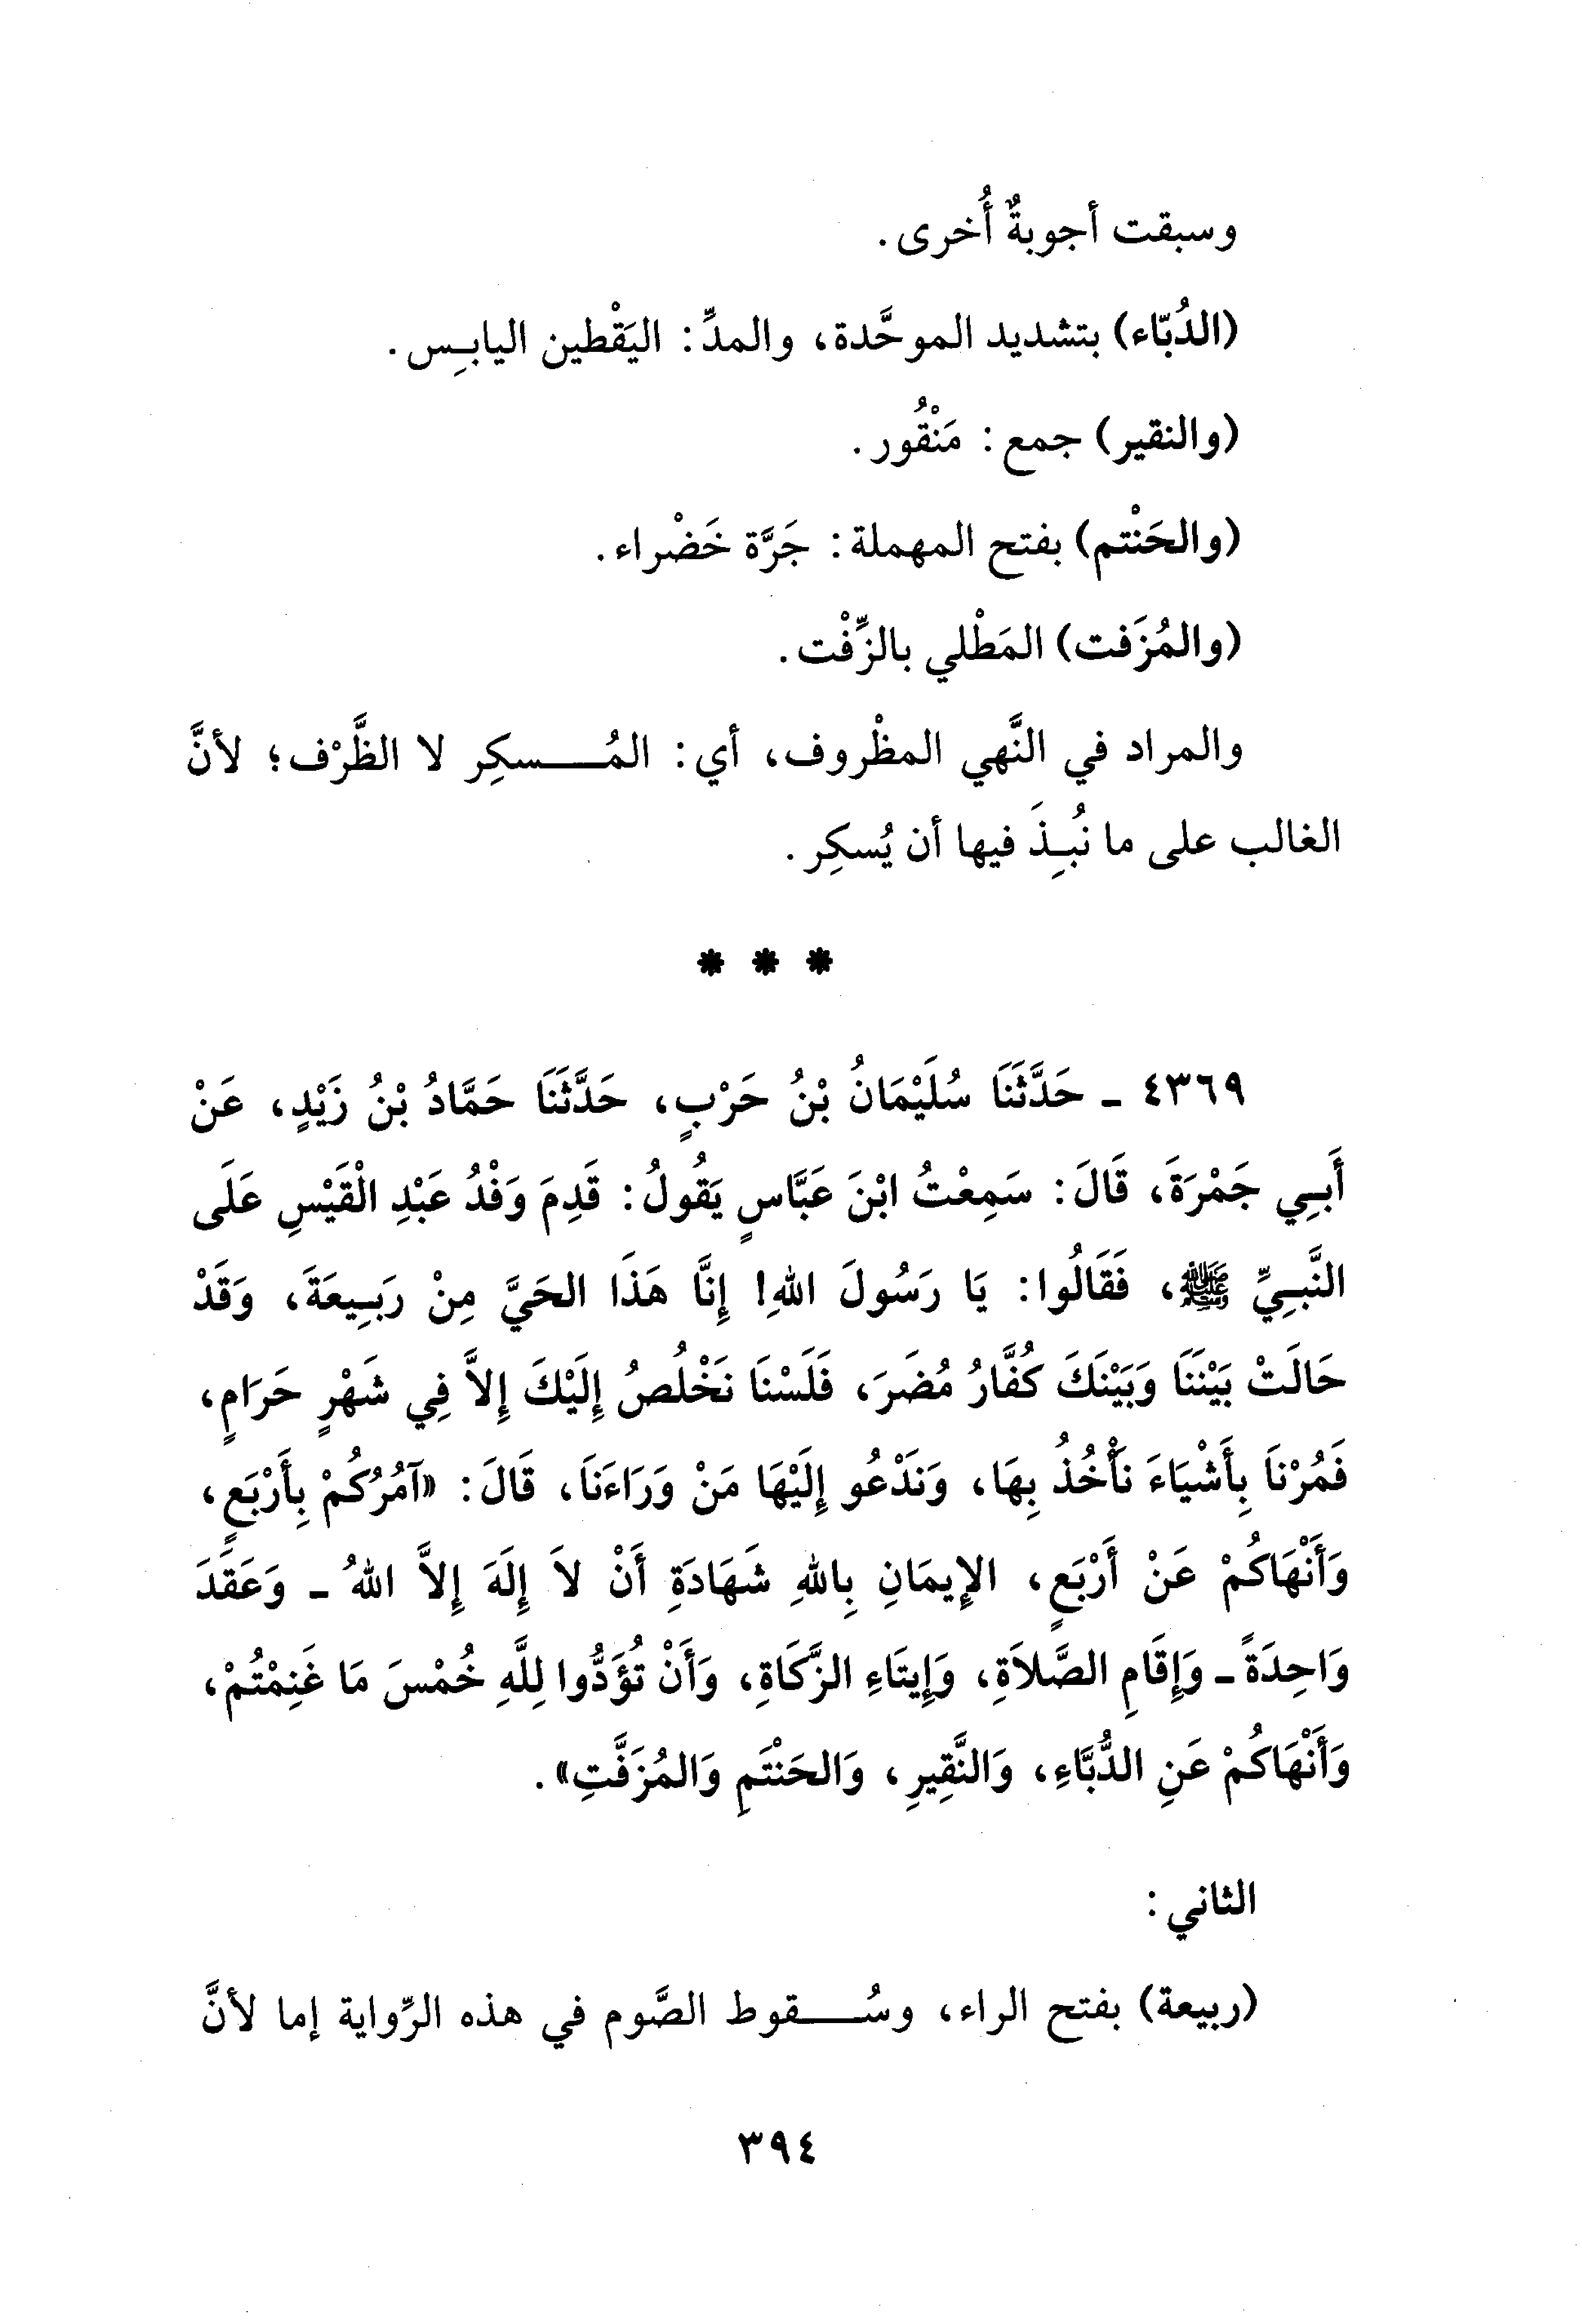 وسبقت أجوبةٌ أُخرى.
(الدُبّاء) بتشديد الموحَّدة، والمدِّ: اليَقْطين اليابِس.
(والنقير) جمع: مَنْقُور.
(والحَنْتم) بفتح المهملة: جَرَّة خَضْراء.
(والمُزَفت) المَطْلي بالزِّفْت.
والمراد في النَّهي المظْروف، أي: المُسكِر لا الظَّرْف؛ لأنَّ
الغالب على ما نُبِذَ فيها أن يُسكِر.
* * *
٤٣٦٩ - حَدَّثَنَا سُلَيْمَانُ بْنُ حَرْبٍ، حَدَّثَنَا حَمَّادُ بْنُ زَيْدٍ، عَنْ
أَبِي جَمْرَةَ، قَالَ: سَمِعْتُ ابْنَ عَبَّاسٍ يَقُولُ: قَدِمَ وَفْدُ عَبْدِ الْقَيْسِ عَلَى
النَّبِيِّ ﷺ، فَقَالُوا: يَا رَسُولَ اللهِ! إِنَّا هَذَا الحَيَّ مِنْ رَبِيعَةَ، وَقَدْ
حَالَتْ بَيْنَنَا وَبَيْنَكَ كُفَّارُ مُضَرَ، فَلَسْنَا نَخْلُصُ إِلَيْكَ إِلاَّ فِي شَهْرٍ حَرَامٍ،
فَمُرْنَا بِأَشْيَاءَ نَأْخُذُ بِهَا، وَنَدْعُو إِلَيْهَا مَنْ وَرَاءَنَا، قَالَ: «آمُرُكُمْ بِأَرْبَعٍ،
وَأَنْهَاكُمْ عَنْ أَرْبَعٍ، الإِيمَانِ بِاللهِ شَهَادَةِ أَنْ لاَ إِلَهَ إِلاَّ اللهُ - وَعَقَدَ
وَاحِدَةً - وَإِقَامِ الصَّلاَةِ، وَإِيتَاءِ الزَّكَاةِ، وَأَنْ تُؤَدُّوا لِلَّهِ خُمْسَ مَا غَنِمْتُمْ،
وَأَنْهَاكُمْ عَنِ الدُّبَّاءِ، وَالنَّقِيرِ، وَالحَنْتَمِ وَالمُزَفَّتِ».
الثاني:
(ربيعة) بفتح الراء، وسُقوط الصَّوم في هذه الرِّواية إما لأنَّ
٣٩٤